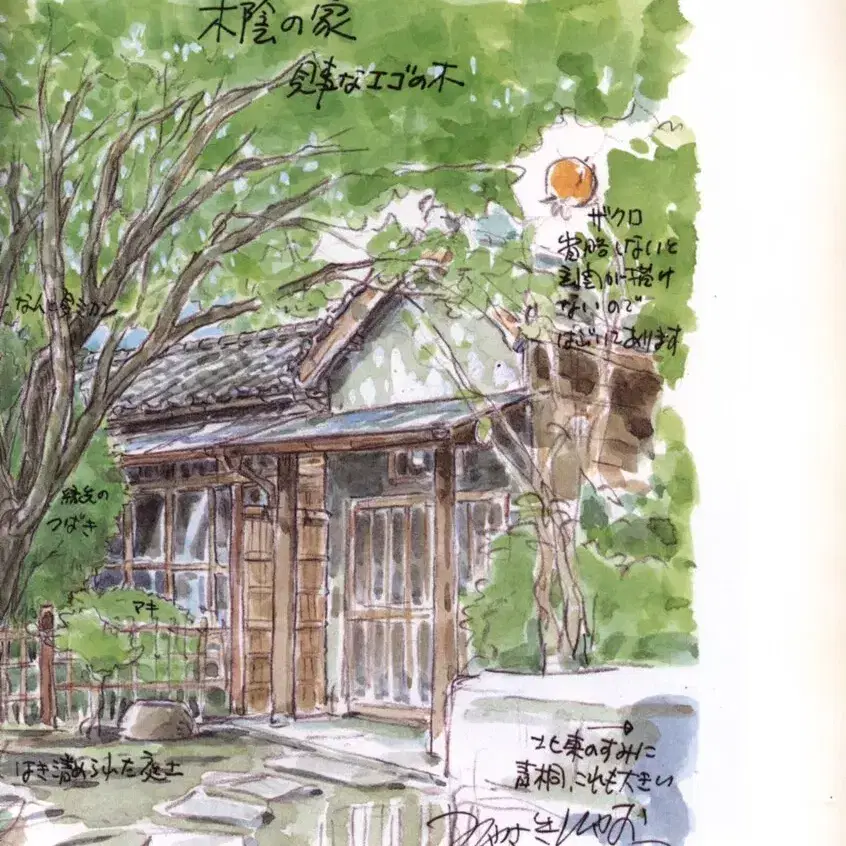 木陰の家
見事なエゴの木
ザクロ
省略しないと
玄関が描け
ないので
はぶいてあります
なんと夏ミカン
緑先の
つばき
マキ
はき清められた庭土
北東のすみに
青桐、これも大きい
みやざきはやお